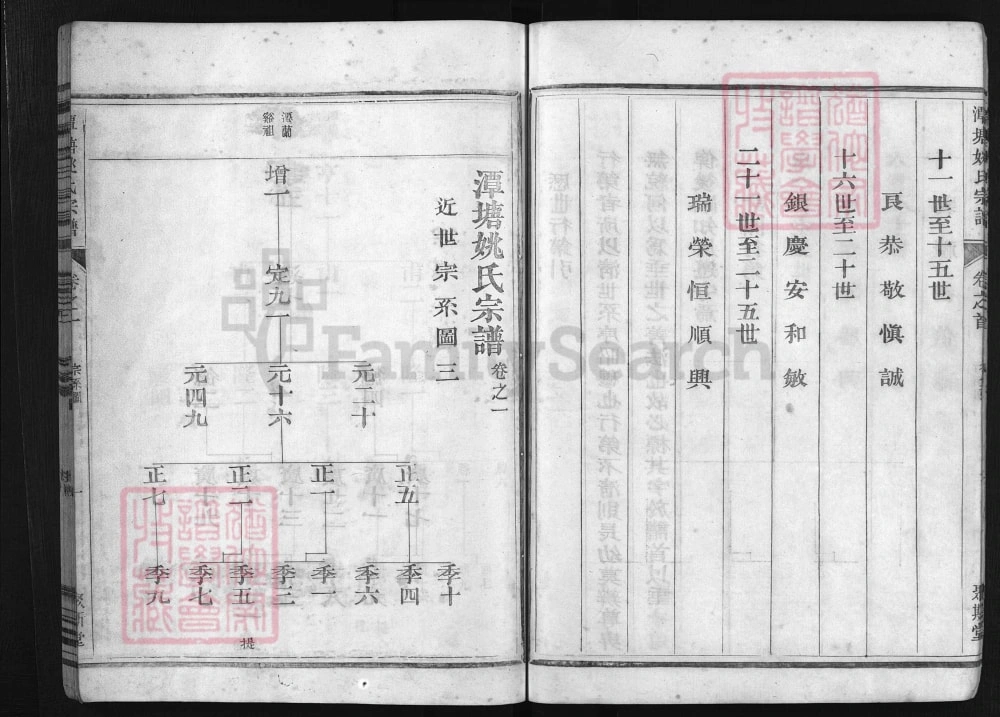 潭塘姚氏宗譜
卷之首
十一世至十五世
良恭敬慎誠
十六世至二十世
銀慶安和敏
二十一世至二十五世
瑞榮恒順興
潭塘姚氏宗譜 卷之一
近世宗系圖三
增一
定九一
元二十
元十六
元四九
正五
正一
正二
正七
季十
季四
季六
季一
季三
季五
季七
季九
提
卷之一
宗系圖
一
FamilySearch